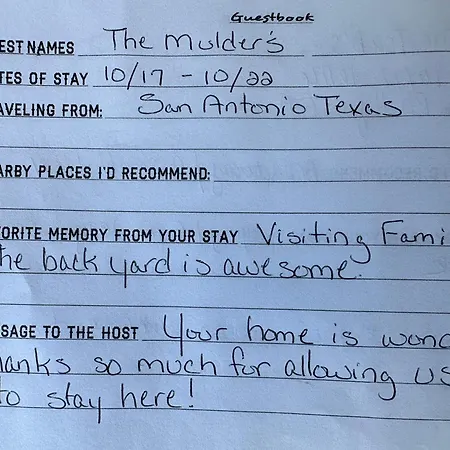 Guestbook
EST NAMES The Mulder's
TES OF STAY 10/17 - 10/22
AVELING FROM: San Antonio Texas
ARBY PLACES I'D RECOMMEND:
VORITE MEMORY FROM YOUR STAY Visiting Fami
he back yard is awesome.
SAGE TO THE HOST Your home is wond
hanks so much for allowing us
to stay here!